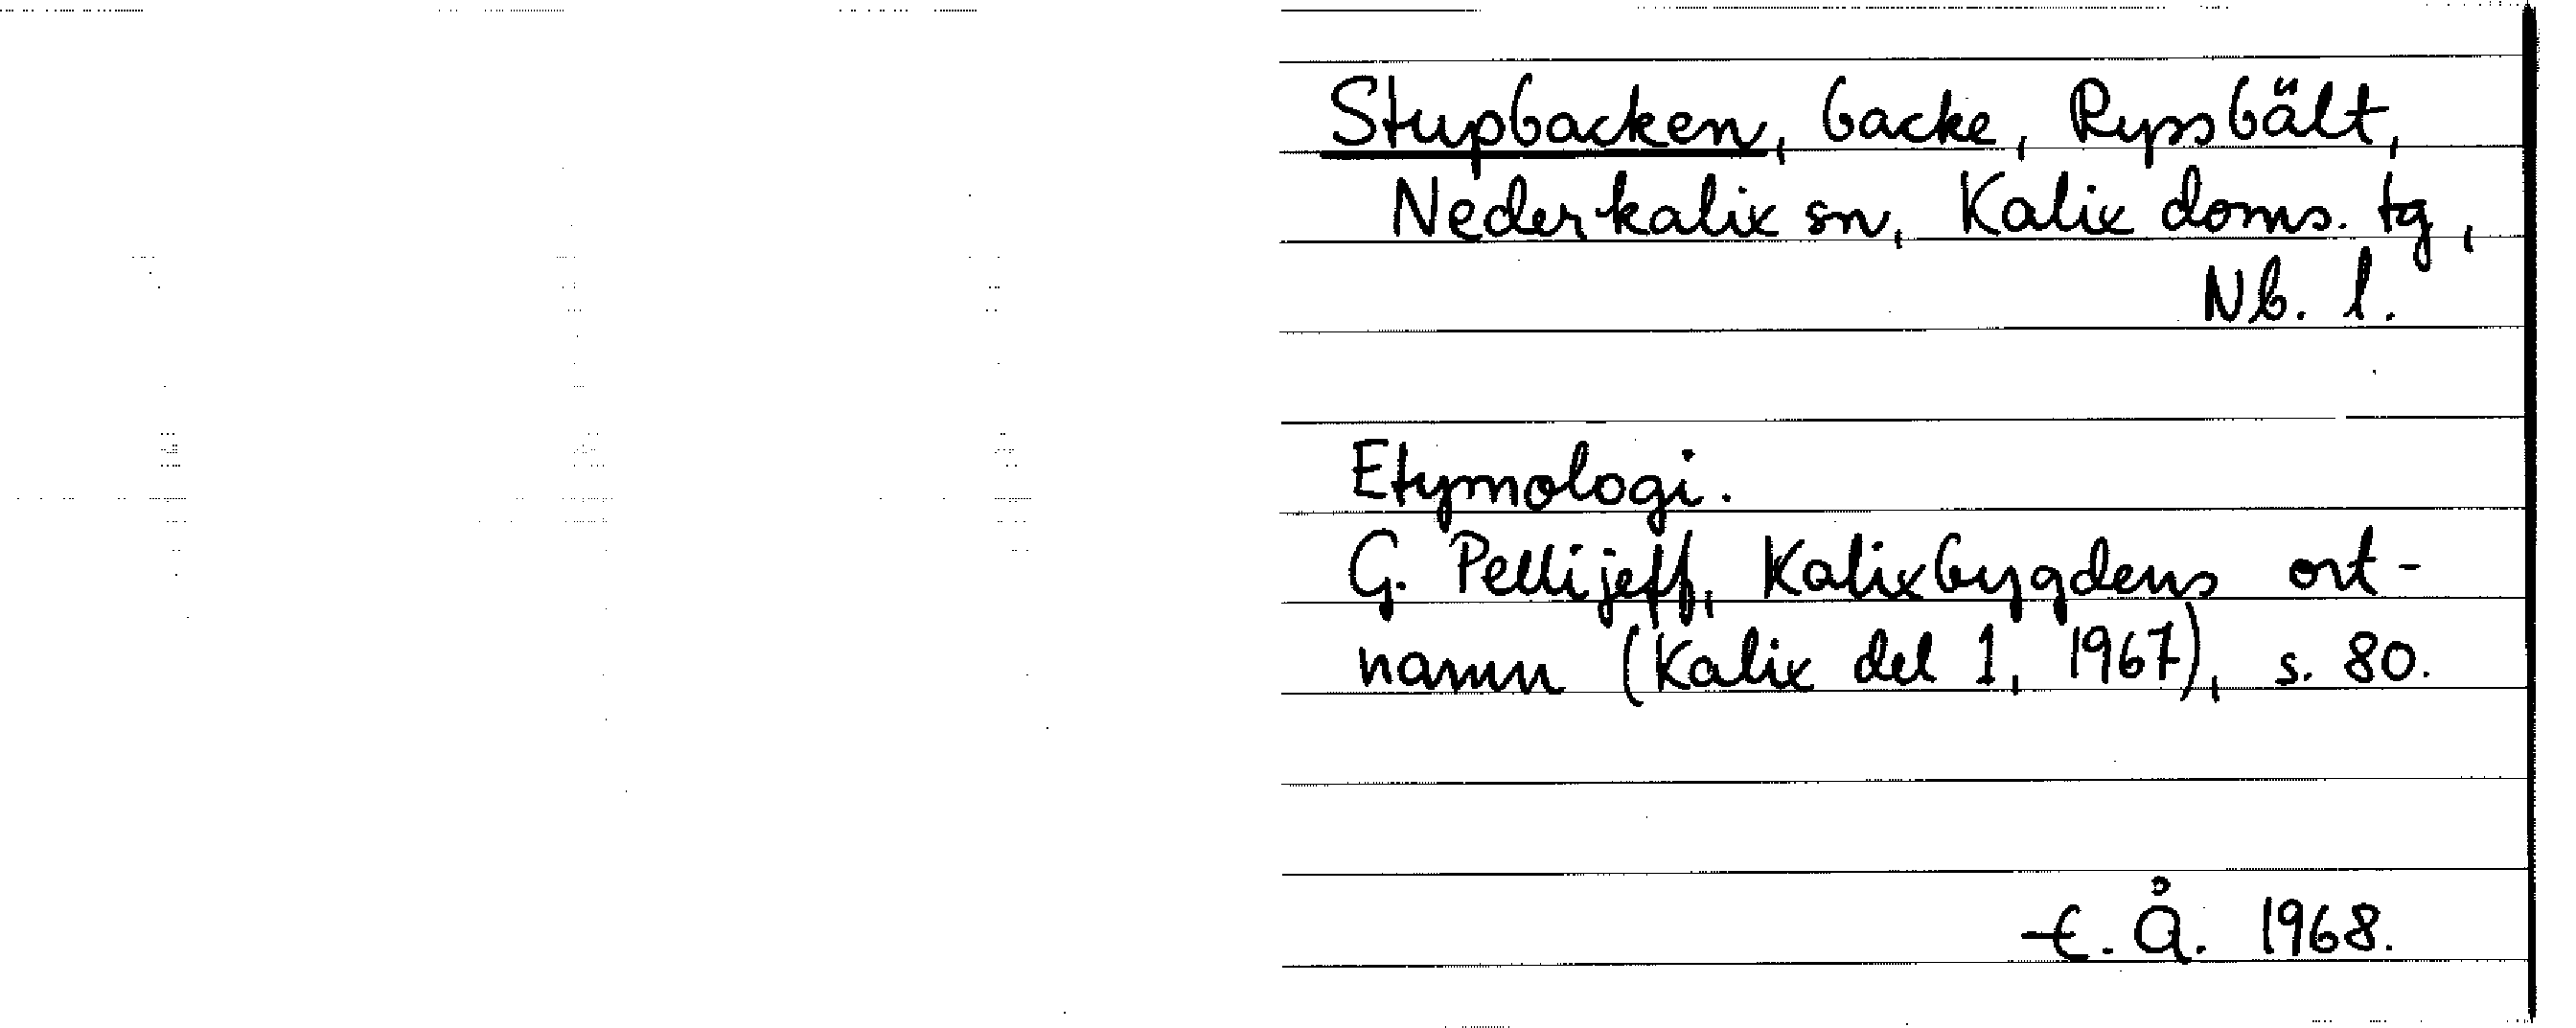 Stupbacken, backe, Ryssbält,
Nederkalix sn, Kalix doms. tg,
Nb. l.
Etymologi.
G. Pellijeff, Kalixbygdens ort-
namn (Kalix del 1, 1967), s. 80.
E. Å. 1968.